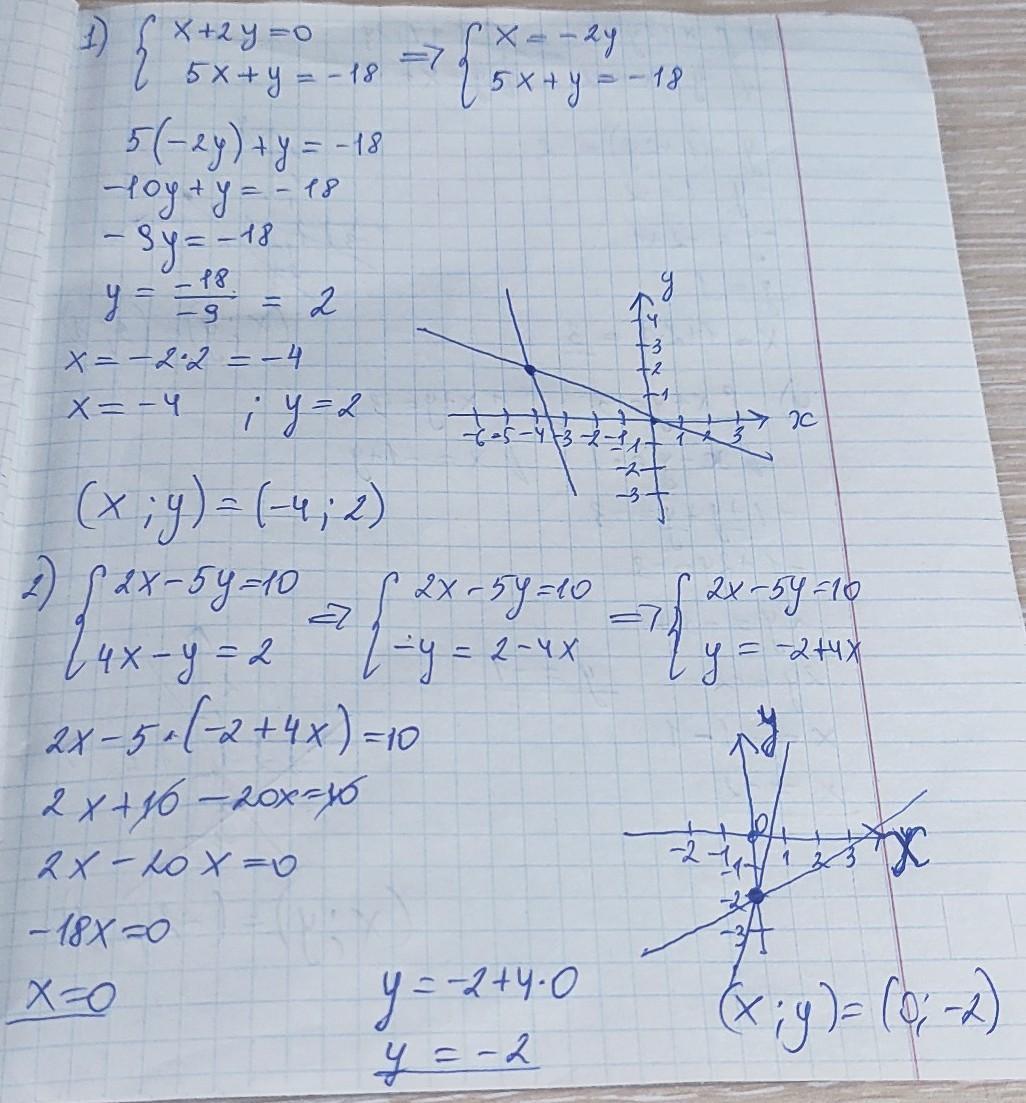 1) { x+2y=0 => { x = -2y
5x+y = -18 5x+y = -18
5(-2y)+y = -18
-10y+y = -18
-9y = -18
y = -18/-9 = 2
x = -2·2 = -4
x = -4 ; y = 2
y
4
3
2
1
x
-6 -5 -4 -3 -2 -1 1 2 3
-1
-2
-3
(x ; y) = (-4 ; 2)
2) { 2x-5y=10 => { 2x-5y=10 => { 2x-5y=10
4x-y = 2 -y = 2-4x y = -2+4x
2x-5·(-2+4x)=10
2x+10-20x=10
2x-20x=0
-18x=0
x=0
y = -2+4·0
y = -2
y
0
-2 -1 1 2 3 x
-1
-2
-3
(x ; y) = (0; -2)